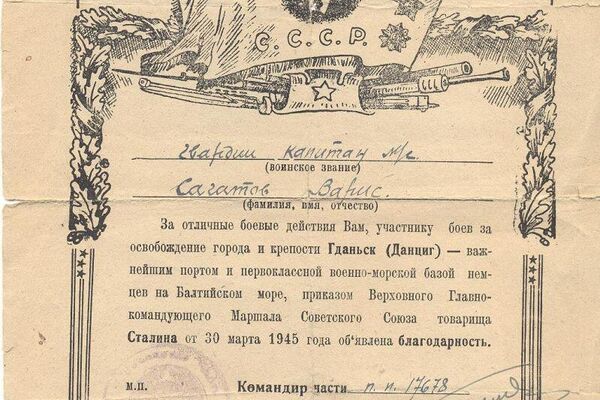 С.С.С.Р.
гвардии капитан м/с.
(воинское звание)
Сагатов Вагис.
(фамилия, имя, отчество)
За отличные боевые действия Вам, участнику боев за
освобождение города и крепости Гданьск (Данциг) — важ-
нейшим портом и первоклассной военно-морской базой нем-
цев на Балтийском море, приказом Верховного Главно-
командующего Маршала Советского Союза товарища
Сталина от 30 марта 1945 года об'явлена благодарность.
м.п. Командир части п.п. 17678